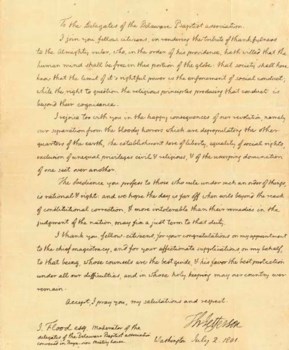 To the Delegates of the Delaware Baptist association.
I join you, fellow citizens, in rendering the tribute of thankfulness
to the Almighty ruler, who in the order of his providence, hath willed that the
human mind shall be free in this portion of the globe: that society shall
know that the limit of it's rightful power is the enforcement of social conduct;
while the right to question the religious principles producing that conduct is
beyond their cognisance.
I rejoice too with you in the happy consequences of our revolution, namely
our separation from the bloody horrors which are depopulating the other
quarters of the earth, the establishment here of liberty, equality of social rights,
exclusion of unequal privileges civil & religious, & of the usurping domination
of one sect over another.
The obedience you profess to those who rule under such an order of things
is rational & right: and we hope the day is far off when evils beyond the reach
of constitutional correction, & more intolerable than their remedies in the
judgment of the nation, may fix a just term to that duty.
I thank you, fellow citizens for your congratulations on my appointment
to the chief magistracy, and for your affectionate supplications on my behalf,
to that being, whose counsels are the best guide, & his favor the best protection
under all our difficulties, and in whose holy keeping may our country ever
remain.
Accept, I pray you, my salutations and respect.
Th: Jefferson
J. Flood esq. moderator of the
delegates of the Delaware Baptist association
Washington July 2. 1801